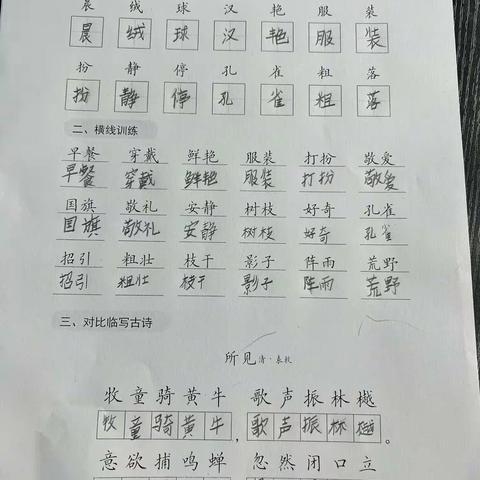 晨 绒 球 汉 艳 服 装
晨 绒 球 汉 艳 服 装
扮 静 停 孔 雀 粗 落
扮 静 停 孔 雀 粗 落
二、横线训练
早餐 穿戴 鲜艳 服装 打扮 敬爱
早餐 穿戴 鲜艳 服装 打扮 敬爱
国旗 敬礼 安静 树枝 好奇 孔雀
国旗 敬礼 安静 树枝 好奇 孔雀
招引 粗壮 枝干 影子 阵雨 荒野
招引 粗壮 枝干 影子 阵雨 荒野
三、对比临写古诗
所见 清·袁枚
牧童骑黄牛 歌声振林樾
牧童骑黄牛，歌声振林樾。
意欲捕鸣蝉 忽然闭口立